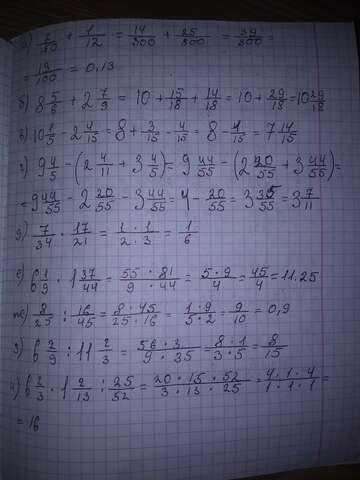 а) 7/50 + 1/12 = 14/300 + 25/300 = 39/300 =
= 13/100 = 0,13
б) 8 5/6 + 2 7/9 = 10 + 15/18 + 14/18 = 10 + 29/18 = 10 29/18
в) 10 1/5 - 2 4/15 = 8 + 3/15 - 4/15 = 8 - 1/15 = 7 14/15
г) 9 4/5 - (2 4/11 + 3 4/5) = 9 44/55 - (2 20/55 + 3 44/55) =
= 9 44/55 - 2 20/55 - 3 44/55 = 4 - 20/55 = 3 35/55 = 3 7/11
д) 7/34 · 17/21 = 1 · 1 / 2 · 3 = 1/6
е) 6 1/9 · 1 37/44 = 55 · 81 / 9 · 44 = 5 · 9 / 4 = 45/4 = 11.25
ж) 8/25 : 16/45 = 8 · 45 / 25 · 16 = 1 · 9 / 5 · 2 = 9/10 = 0,9
з) 6 2/9 : 11 2/3 = 56 · 3 / 9 · 35 = 8 · 1 / 3 · 5 = 8/15
и) 6 2/3 · 1 2/13 : 25/52 = 20 · 15 · 52 / 3 · 13 · 25 = 4 · 1 · 4 / 1 · 1 · 1 =
= 16